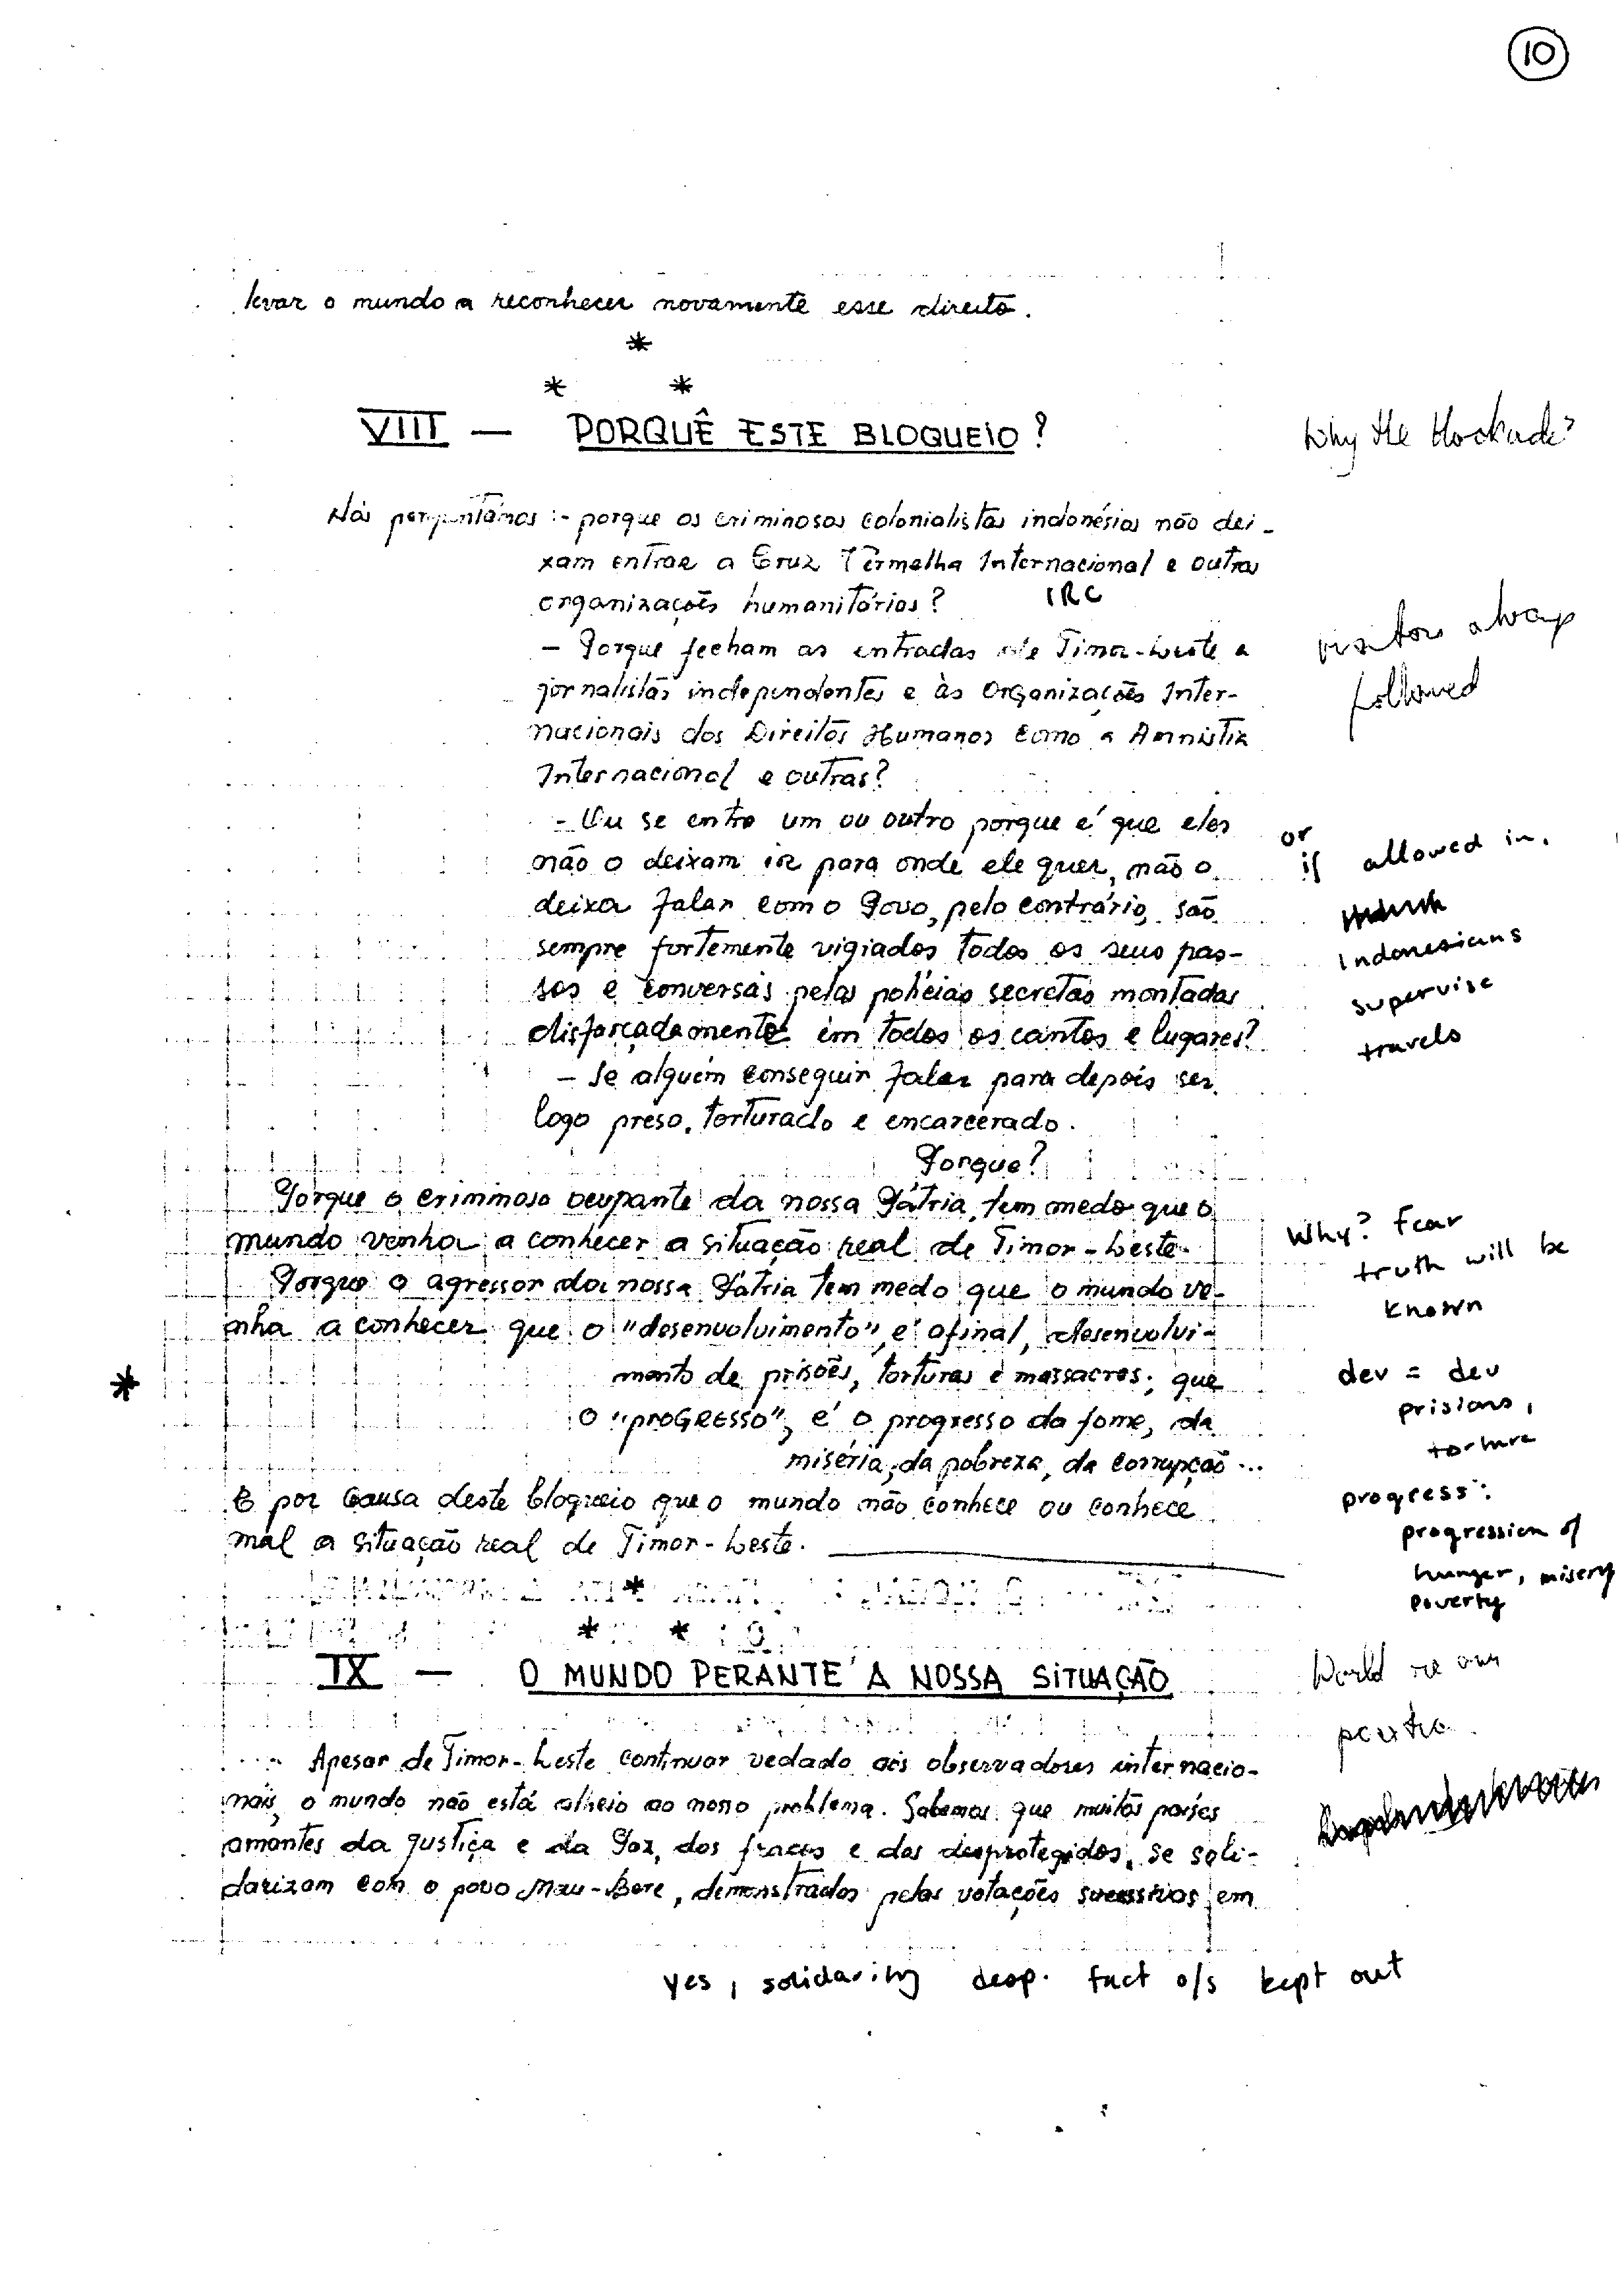 10
levar o mundo a reconhecer novamente esse direito.
*
* *
VIII — PORQUÊ ESTE BLOQUEIO?
Why the blockade?
Nós perguntámos :- porque os criminosos colonialistas indonésios não dei-
xam entrar a Cruz Vermelha Internacional e outras
organizações humanitárias?
IRC
- Porque fecham as entradas de Timor-Leste a
jornalistas independentes e às Organizações Inter-
nacionais dos Direitos Humanos como a Amnistia
Internacional e outras?
visitors always
followed
- Ou se entra um ou outro porque é que eles
não o deixam ir para onde ele quer, não o
deixa falar com o Povo, pelo contrário, são
sempre fortemente vigiados todos os seus pas-
sos e conversas pelas polícias secretas montadas
disfarçadamente em todos os cantos e lugares?
or
if allowed in.
Indonesians
supervise
travels
- Se alguém conseguir falar para depois ser
logo preso, torturado e encarcerado.
Porque?
Porque o criminoso ocupante da nossa Pátria, tem medo que o
mundo venha a conhecer a situação real de Timor-Leste.
Porque o agressor da nossa Pátria tem medo que o mundo ve-
nha a conhecer que o "desenvolvimento", é afinal, desenvolvi-
mento de prisões, torturas e massacres; que
o "proGRESSO", é o progresso da fome, da
miséria, da pobreza, da corrupção...
Why? Fear
truth will be
known
*
dev = dev
prisions,
torture
progress:
progression of
hunger, misery
poverty
É por causa deste bloqueio que o mundo não conhece ou conhece
mal a situação real de Timor-Leste.
*
* *
IX — O MUNDO PERANTE A NOSSA SITUAÇÃO
World re our
Apesar de Timor-Leste continuar vedado aos observadores internacio-
nais, o mundo não está alheio ao nosso problema. Sabemos que muitos países
amantes da justiça e da Paz, dos fracos e dos desprotegidos, se soli-
darizam com o povo Mau-Bere, demonstrados pelas votações sucessivas em
yes, solidarity desp. fact o/s kept out